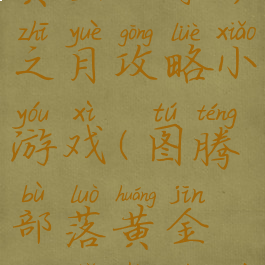 zhī yuè gōng lüè xiǎo
之月攻略小
yóu xì tú téng
游戏(图腾
bù luò huáng jīn
部落黄金